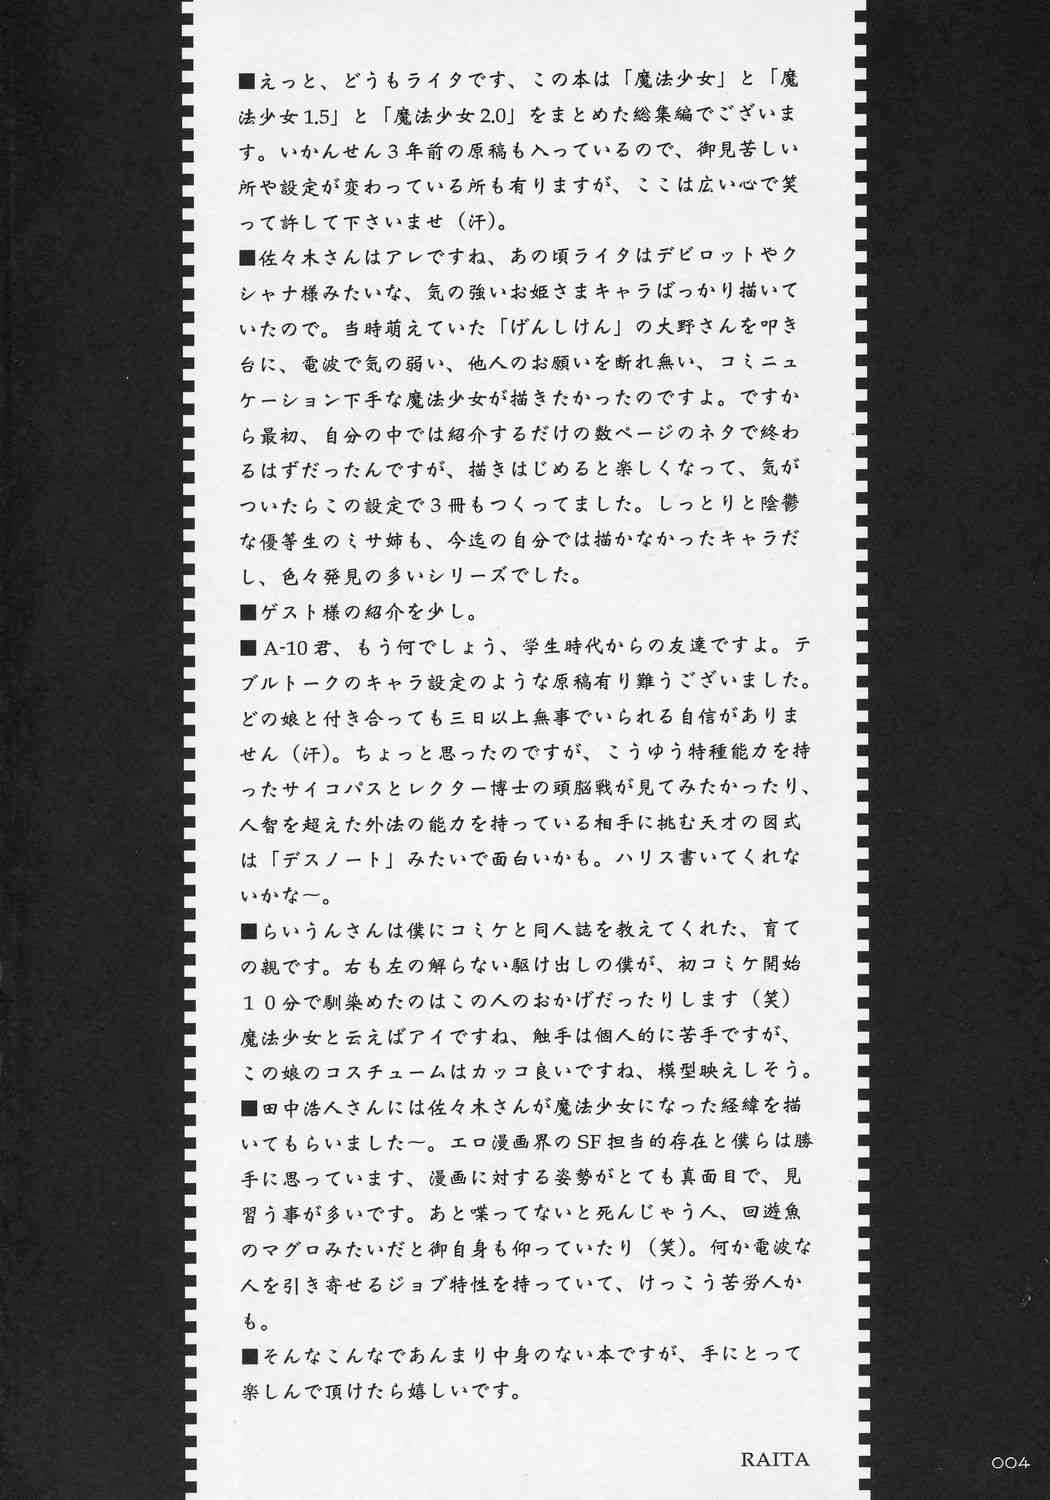 ■えっと、どうもライタです、この本は「魔法少女」と「魔
法少女1.5」と「魔法少女2.0」をまとめた総集編でございま
す。いかんせん３年前の原稿も入っているので、御見苦しい
所や設定が変わっている所も有りますが、ここは広い心で笑
って許して下さいませ（汗）。
■佐々木さんはアレですね、あの頃ライタはデビロットやク
シャナ様みたいな、気の強いお姫さまキャラばっかり描いて
いたので。当時萌えていた「げんしけん」の大野さんを叩き
台に、電波で気の弱い、他人のお願いを断れ無い、コミニュ
ケーション下手な魔法少女が描きたかったのですよ。ですか
ら最初、自分の中では紹介するだけの数ページのネタで終わ
るはずだったんですが、描きはじめると楽しくなって、気が
ついたらこの設定で３冊もつくってました。しっとりと陰鬱
な優等生のミサ姉も、今迄の自分では描かなかったキャラだ
し、色々発見の多いシリーズでした。
■ゲスト様の紹介を少し。
■A-10君、もう何でしょう、学生時代からの友達ですよ。テ
ブルトークのキャラ設定のような原稿有り難うございました。
どの娘と付き合っても三日以上無事でいられる自信がありま
せん（汗）。ちょっと思ったのですが、こうゆう特種能力を持
ったサイコパスとレクター博士の頭脳戦が見てみたかったり、
人智を超えた外法の能力を持っている相手に挑む天才の図式
は「デスノート」みたいで面白いかも。ハリス書いてくれな
いかな～。
■らいうんさんは僕にコミケと同人誌を教えてくれた、育て
の親です。右も左の解らない駆け出しの僕が、初コミケ開始
１０分で馴染めたのはこの人のおかげだったりします（笑）
魔法少女と云えばアイですね、触手は個人的に苦手ですが、
この娘のコスチュームはカッコ良いですね、模型映えしそう。
■田中浩人さんには佐々木さんが魔法少女になった経緯を描
いてもらいました～。エロ漫画界のSF担当的存在と僕らは勝
手に思っています、漫画に対する姿勢がとても真面目で、見
習う事が多いです。あと喋ってないと死んじゃう人、回遊魚
のマグロみたいだと御自身も仰っていたり（笑）。何か電波な
人を引き寄せるジョブ特性を持っていて、けっこう苦労人か
も。
■そんなこんなであんまり中身のない本ですが、手にとって
楽しんで頂けたら嬉しいです。
RAITA
004